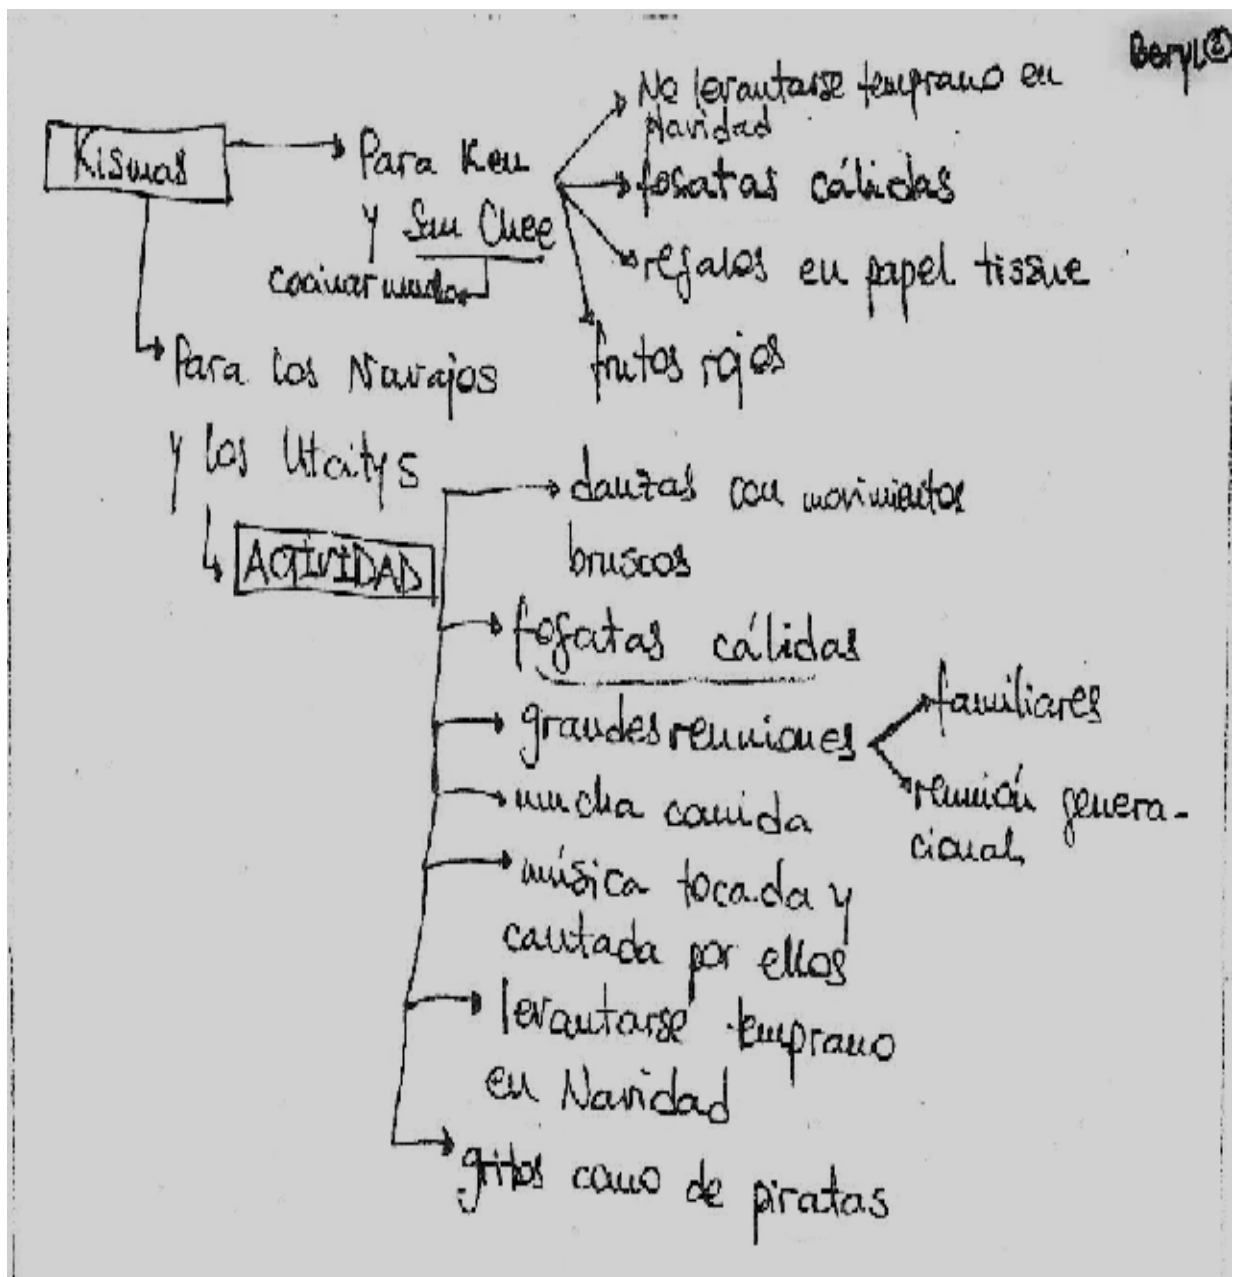 Beryl②
Kismas
Para Ken
y Sun Chee
cocinar mucho
No levantarse temprano en
Navidad
fogatas cálidas
regalos en papel tissue
frutos rojos
Para los Navajos
y los Utcitys
ACTIVIDAD
danzas con movimientos
bruscos
fogatas cálidas
grandes reuniones
familiares
reunión genera-
cional
mucha comida
música tocada y
cantada por ellos
levantarse temprano
en Navidad
gritos como de piratas